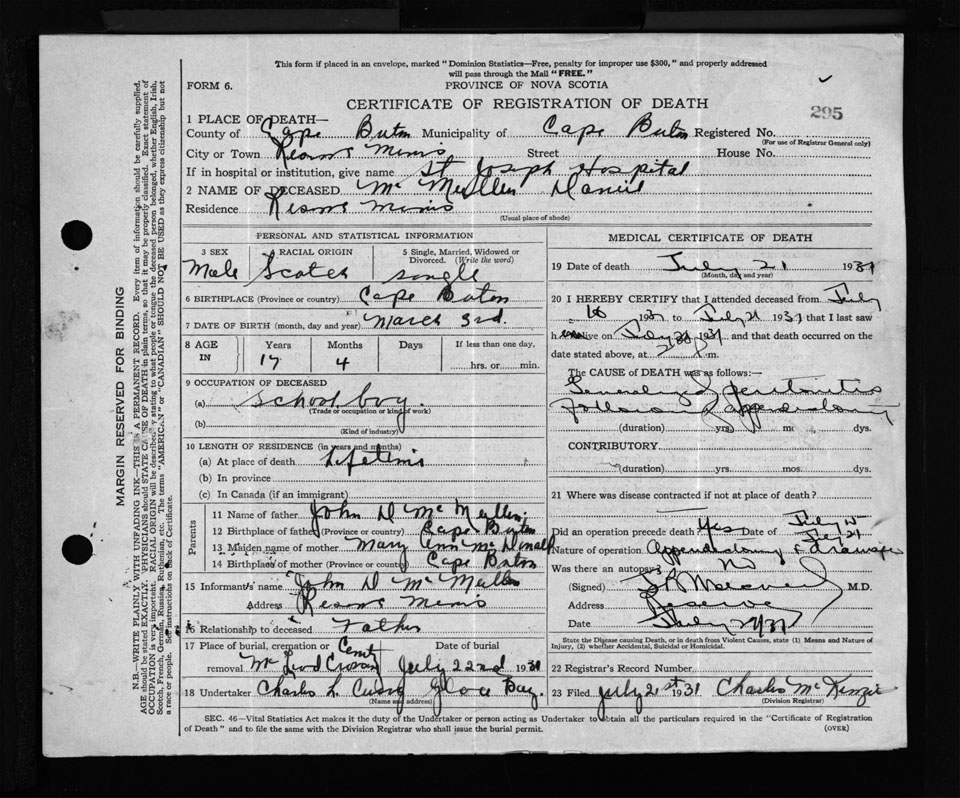 This form if placed in an envelope, marked "Dominion Statistics—Free, penalty for improper use $300," and properly addressed
will pass through the Mail "FREE."
FORM 6.
PROVINCE OF NOVA SCOTIA
CERTIFICATE OF REGISTRATION OF DEATH
295
1 PLACE OF DEATH—
County of Cape Breton Municipality of Cape Breton Registered No.
(For use of Registrar General only)
City or Town Street House No.
If in hospital or institution, give name St. Joseph Hospital
2 NAME OF DECEASED McMullen Daniel
Residence
(Usual place of abode)
PERSONAL AND STATISTICAL INFORMATION
3 SEX RACIAL ORIGIN 5 Single, Married, Widowed or
Divorced. (Write the word)
Male Scotch single
6 BIRTHPLACE (Province or country) Cape Breton
7 DATE OF BIRTH (month, day and year) March 3rd.
8 AGE IN Years Months Days If less than one day,
17 4 hrs. or min.
9 OCCUPATION OF DECEASED
(a) School boy.
(Trade or occupation or kind of work)
(b)
(Kind of industry)
10 LENGTH OF RESIDENCE (in years and months)
(a) At place of death Lifetime
(b) In province
(c) In Canada (if an immigrant)
Parents
11 Name of father John D McMullen
12 Birthplace of father (Province or country) Cape Breton
13 Maiden name of mother Mary Ann McDonald
14 Birthplace of mother (Province or country) Cape Breton
15 Informant's name John D McMullen
Address
16 Relationship to deceased Father
17 Place of burial, cremation or Date of burial
removal July 22nd 1931
18 Undertaker Charles L. Glace Bay.
(Name and address)
MEDICAL CERTIFICATE OF DEATH
19 Date of death July 21 1931
(Month, day and year)
20 I HEREBY CERTIFY that I attended deceased from July
193 to July 21 1931 that I last saw
h alive on July 1931 and that death occurred on the
date stated above, at m.
The CAUSE OF DEATH was as follows:—
(duration) yrs. mos. dys.
CONTRIBUTORY
(duration) yrs. mos. dys.
21 Where was disease contracted if not at place of death?
Did an operation precede death? Yes Date of July
Nature of operation
Was there an autopsy? No
(Signed) M.D.
Address Reserve
Date July 1931
State the Disease causing Death, or in death from Violent Cause, state (1) Means and Nature of
Injury, (2) whether Accidental, Suicidal or Homicidal.
22 Registrar's Record Number
23 Filed July 21st 1931 Charles McKenzie
(Division Registrar)
SEC. 46—Vital Statistics Act makes it the duty of the Undertaker or person acting as Undertaker to obtain all the particulars required in the "Certificate of Registration
of Death" and to file the same with the Division Registrar who shall issue the burial permit.
(OVER)
MARGIN RESERVED FOR BINDING
N.B.—WRITE PLAINLY WITH UNFADING INK—THIS IS A PERMANENT RECORD. Every item of information should be carefully supplied.
AGE should be stated EXACTLY. PHYSICIANS should STATE CAUSE OF DEATH in plain terms, so that it may be properly classified. Exact statement of
OCCUPATION is very important. RACIAL ORIGIN will be described by stating to what people or tongue the deceased person belonged, whether English, Irish,
Scotch, French, German, Russian, Ruthenian, etc. The terms "AMERICAN" or "CANADIAN" SHOULD NOT BE USED as they express citizenship but not
a race or people. See instructions on back of Certificate.